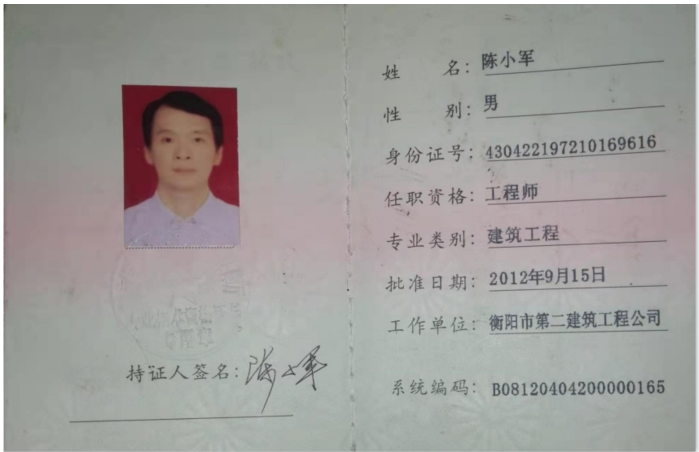 持证人签名：陈小军
姓 名：陈小军
性 别：男
身份证号：430422197210169616
任职资格：工程师
专业类别：建筑工程
批准日期：2012年9月15日
工作单位：衡阳市第二建筑工程公司
系统编码：B08120404200000165